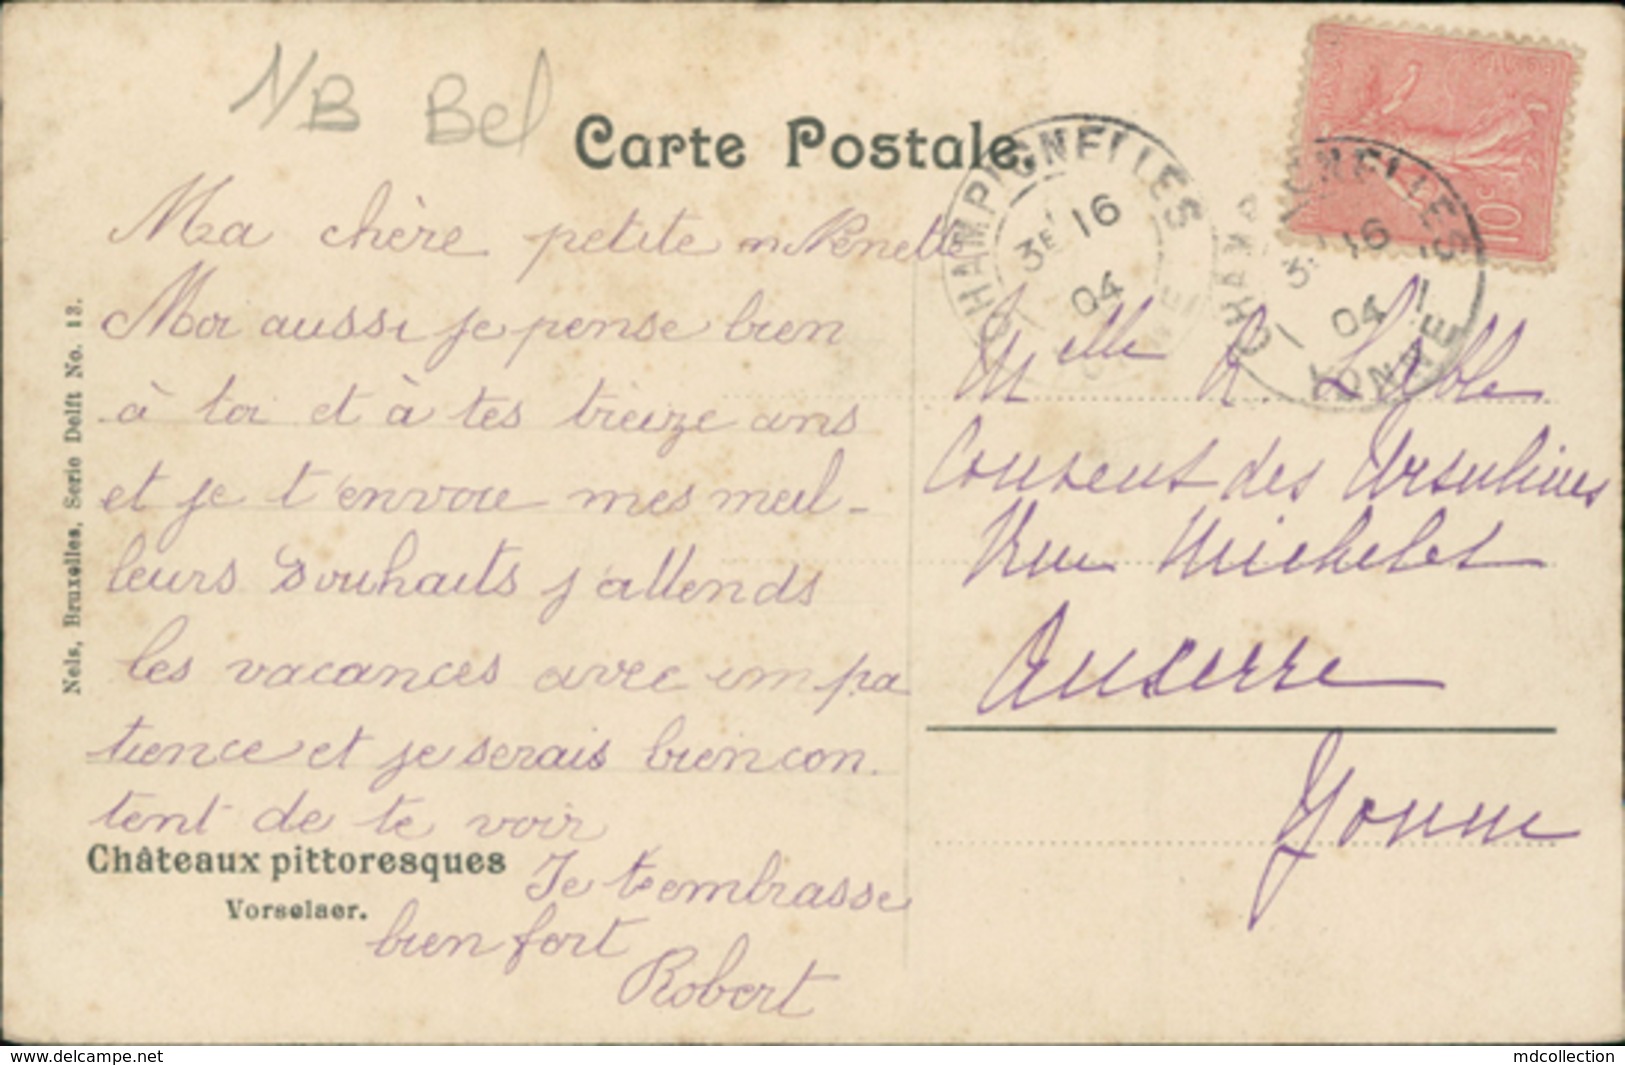 N/B Bel
Carte Postale.
CHAMPIGNELLES
3E 16
04
YONNE
CHAMPIGNELLES
3E 16
04
YONNE
10c
Ma chère petite Nénette
Moi aussi je pense bien
à toi et à tes treize ans
et je t'envoie mes meil-
leurs souhaits j'attends
les vacances avec impa
tience et je serais bien con.
tent de te voir
Je t'embrasse
bien fort
Robert
Châteaux pittoresques
Vorselaer.
Nels, Bruxelles, Serie Delft No. 13.
Melle R.
Couvent des Ursulines
Rue Michelet
Auxerre
Yonne
www.delcampe.net
mdcollection